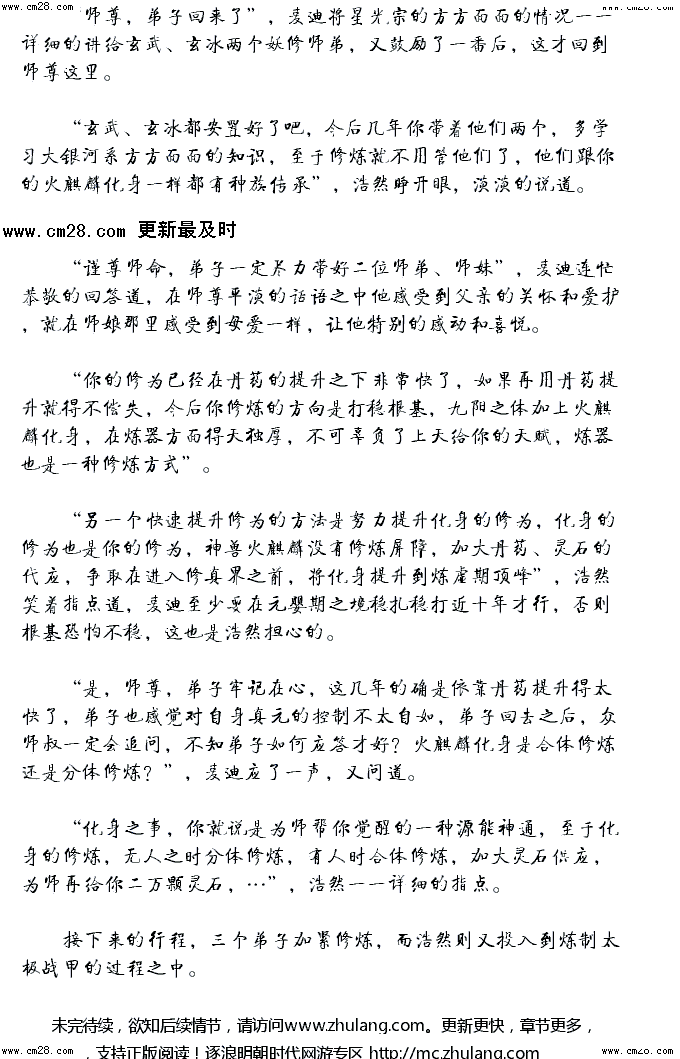 www.cm28.com www.cm28.com
师尊，弟子回来了”，麦迪将星光宗的方方面面的情况一一
详细的讲给玄武、玄冰两个妖修师弟，又鼓励了一番后，这才回到
师尊这里。
“玄武、玄冰都安置好了吧，今后几年你带着他们两个，多学
习大银河系方方面面的知识，至于修炼就不用管他们了，他们跟你
的火麒麟化身一样都有种族传承”，浩然睁开眼，淡淡的说道。
www.cm28.com 更新最及时
“谨尊师命，弟子一定尽力带好二位师弟、师妹”，麦迪连忙
恭敬的回答道，在师尊平淡的话语之中他感受到父亲的关怀和爱护
，就在师娘那里感受到母爱一样，让他特别的感动和喜悦。
“你的修为已经在丹药的提升之下非常快了，如果再用丹药提
升就得不偿失，今后你修炼的方向是打稳根基，九阳之体加上火麒
麟化身，在炼器方面得天独厚，不可辜负了上天给你的天赋，炼器
也是一种修炼方式”。
“另一个快速提升修为的方法是努力提升化身的修为，化身的
修为也是你的修为，神兽火麒麟没有修炼屏障，加大丹药、灵石的
代应，争取在进入修真界之前，将化身提升到炼虚期顶峰”，浩然
笑着指点道，麦迪至少要在元婴期之境稳扎稳打近十年才行，否则
根基恐怕不稳，这也是浩然担心的。
“是，师尊，弟子牢记在心，这几年的确是依靠丹药提升得太
快了，弟子也感觉对自身真元的控制不太自如，弟子回去之后，众
师叔一定会追问，不知弟子如何应答才好？火麒麟化身是合体修炼
还是分体修炼？”，麦迪应了一声，又问道。
“化身之事，你就说是为师帮你觉醒的一种源能神通，至于化
身的修炼，无人之时分体修炼，有人时合体修炼，加大灵石供应，
为师再给你二万颗灵石，…”，浩然一一详细的指点。
接下来的行程，三个弟子加紧修炼，而浩然则又投入到炼制太
极战甲的过程之中。
未完待续，欲知后续情节，请访问www.zhulang.com。更新更快，章节更多，
，支持正版阅读！逐浪明朝时代网游专区 http://mc.zhulang.com
www.cm28.com www.cm28.com